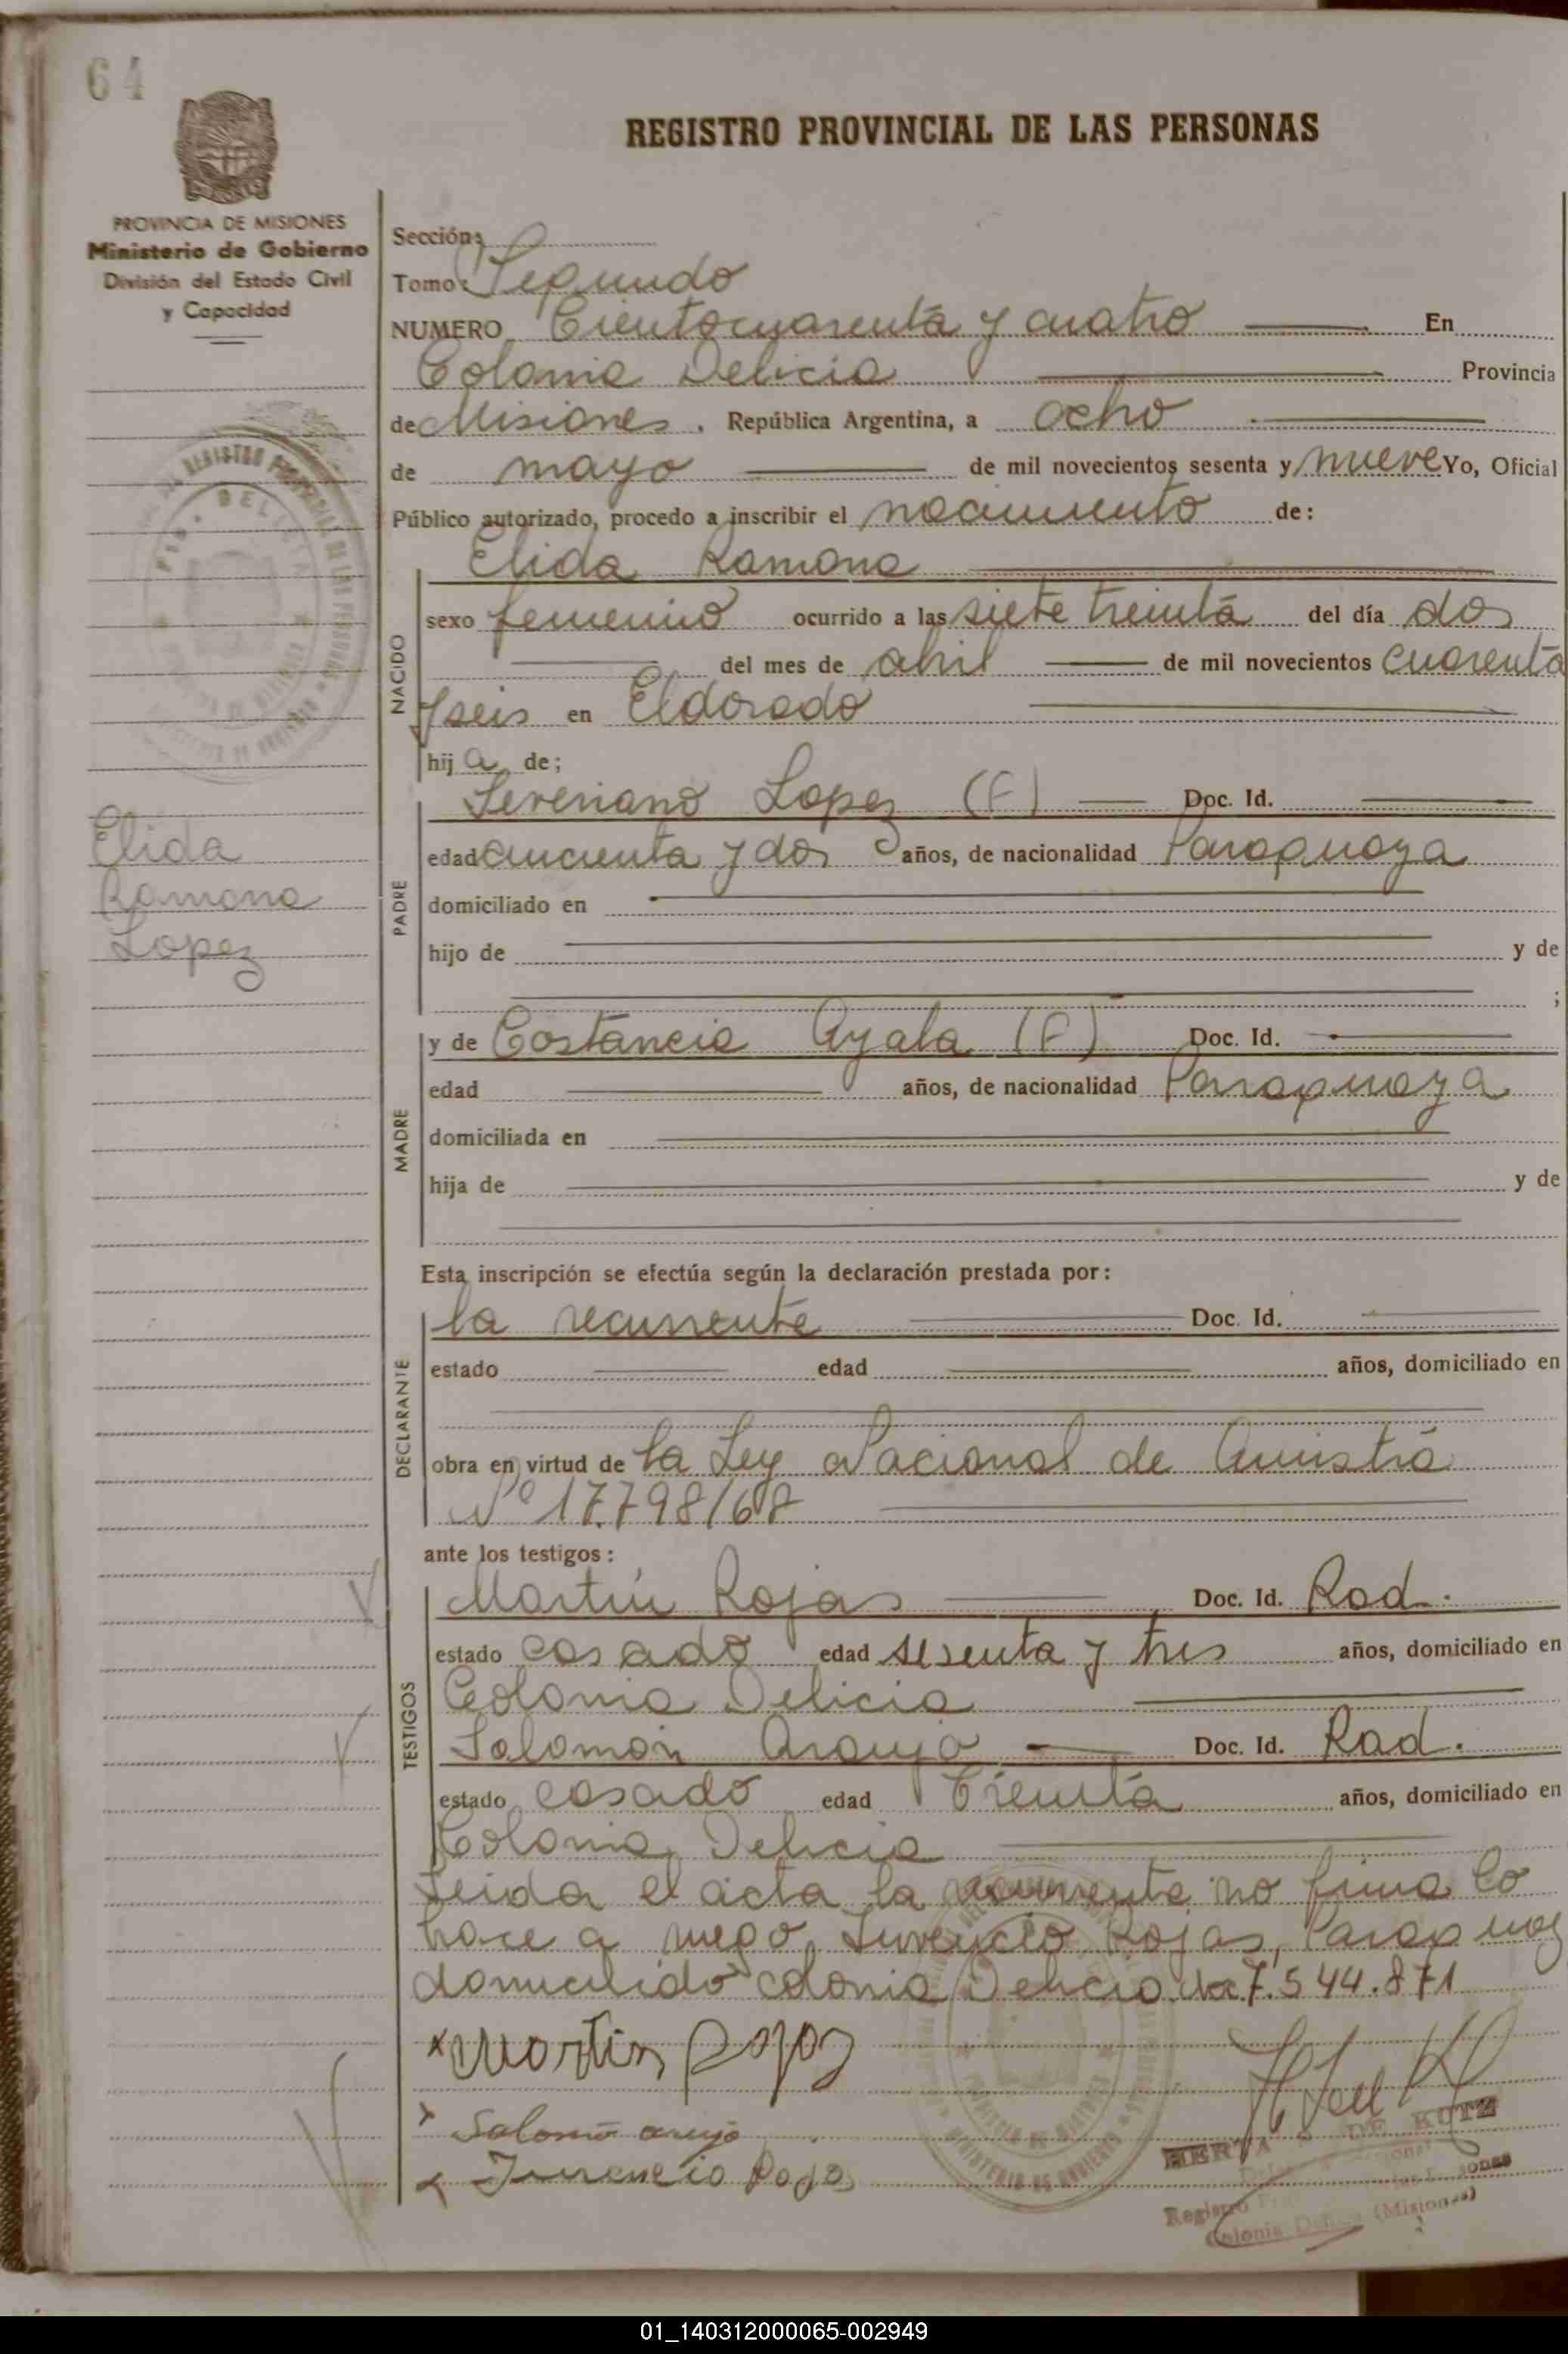 64
REGISTRO PROVINCIAL DE LAS PERSONAS
PROVINCIA DE MISIONES
Ministerio de Gobierno
División del Estado Civil
y Capacidad
Sección:
Tomo: Segundo
NUMERO Cientocuarenta y cuatro En
Colonia Delicia Provincia
de Misiones. República Argentina, a ocho
de mayo de mil novecientos sesenta y nueve Yo, Oficial
Público autorizado, procedo a inscribir el nacimiento de:
Elida Ramona
NACIDO
sexo femenino ocurrido a las siete treinta del día dos
del mes de abril de mil novecientos cuarenta
y seis en Eldorado
hija de;
Elida
Ramona
Lopez
PADRE
Severiano Lopez (F) Doc. Id.
edad cincuenta y dos años, de nacionalidad Paraguaya
domiciliado en
hijo de y de
;
MADRE
y de Costancia Ayala (F) Doc. Id.
edad años, de nacionalidad Paraguaya
domiciliada en
hija de y de
Esta inscripción se efectúa según la declaración prestada por:
DECLARANTE
la recurrente Doc. Id.
estado edad años, domiciliado en
obra en virtud de la Ley Nacional de Amistia
Nº 17.798/68
ante los testigos:
TESTIGOS
Martin Rojas Doc. Id. Rad.
estado casado edad sesenta y tres años, domiciliado en
Colonia Delicia
Salomon Araujo Doc. Id. Rad.
estado casado edad Treinta años, domiciliado en
Colonia Delicia
Leida el acta la recurrente no firma lo
hace a ruego Juvencio Rojas, Paraguay
domicilido colonia Delicia doc 7.544.871
x Martin Rojas
x Salomo araujo
x Juvencio Rojas
HERTA DE KUTZ
Registro
Colonia Delicia (Misiones)
01_140312000065-002949